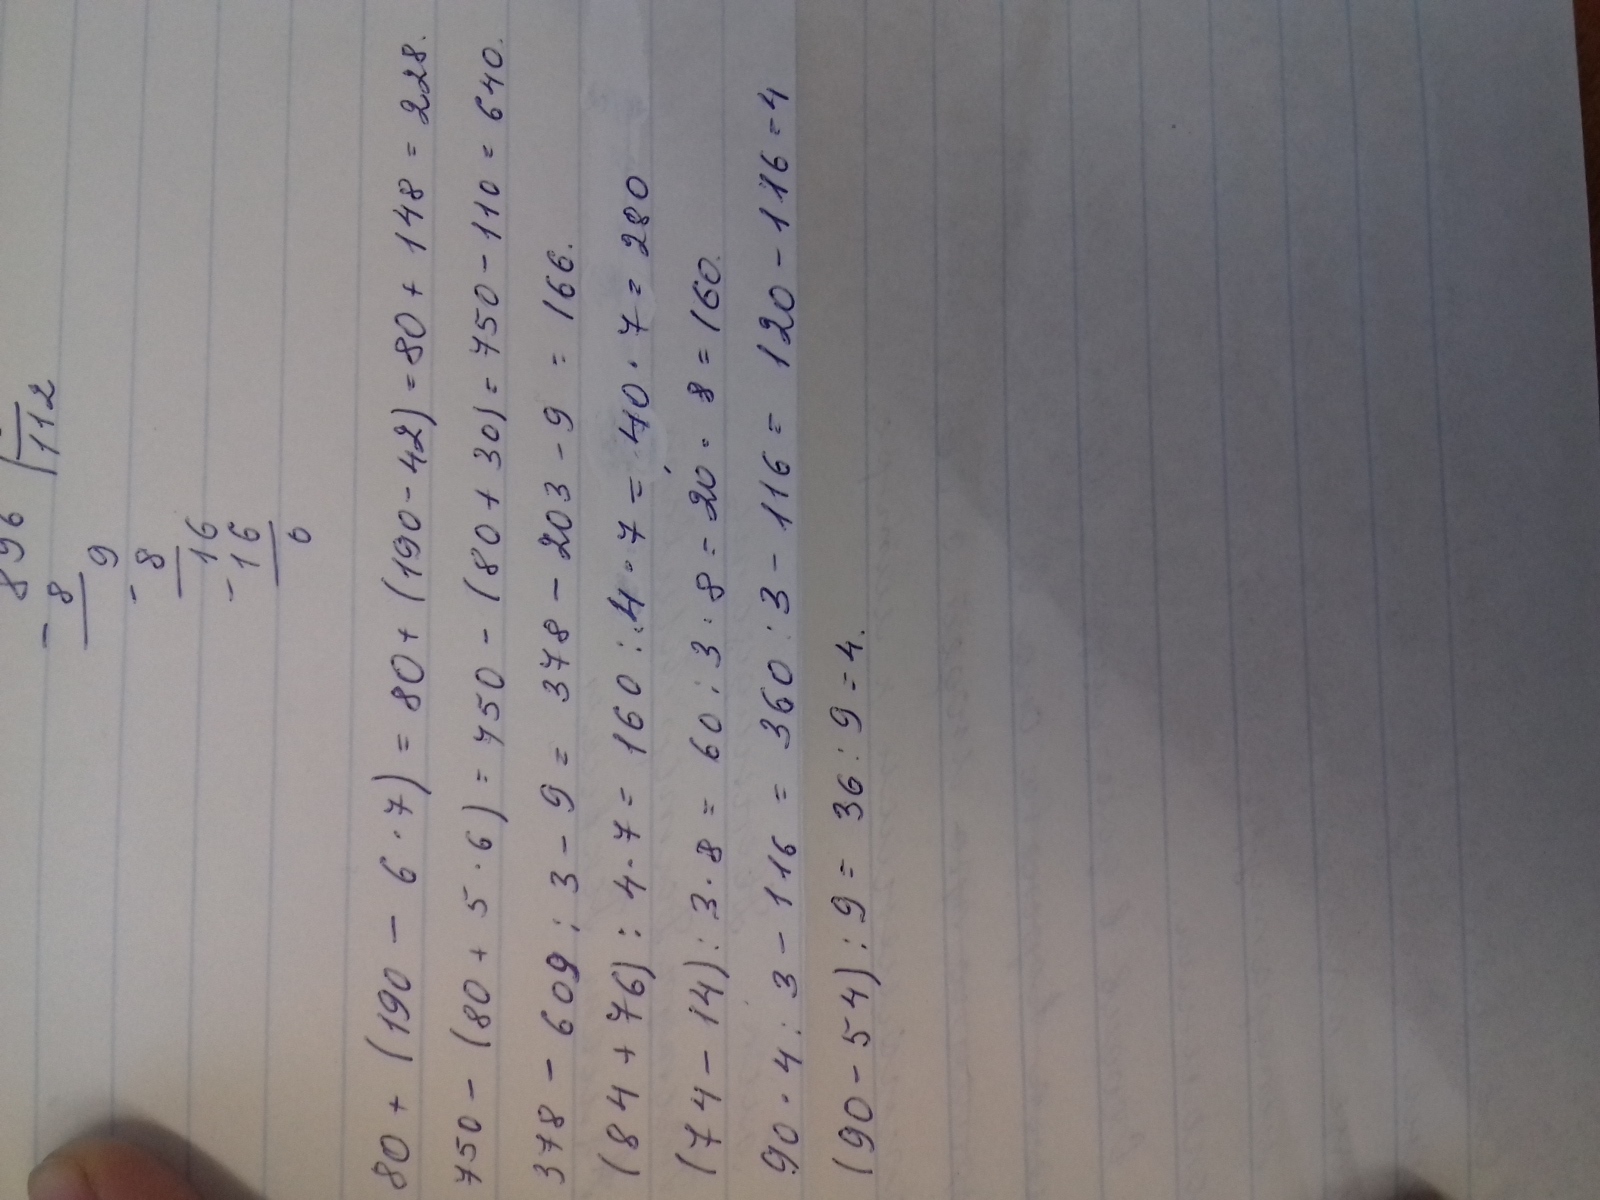 896
- 8 112
9
- 8
16
- 16
0
80 + (190 - 6 · 7) = 80 + (190 - 42) = 80 + 148 = 228.
750 - (80 + 5 · 6) = 750 - (80 + 30) = 750 - 110 = 640.
378 - 609 : 3 - 9 = 378 - 203 - 9 = 166.
(84 + 76) : 4 · 7 = 160 : 4 · 7 = 40 · 7 = 280
(74 - 14) : 3 · 8 = 60 : 3 · 8 = 20 · 8 = 160.
90 · 4 : 3 - 116 = 360 : 3 - 116 = 120 - 116 = 4
(90 - 54) : 9 = 36 : 9 = 4.